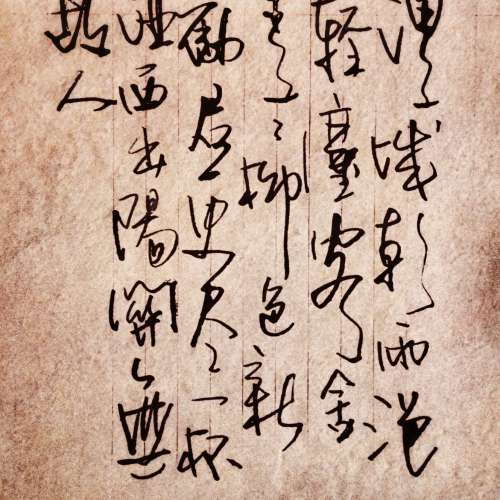 渭城朝雨浥
輕塵客舍
青〻柳色新
勸君更尽一杯
酒西出陽關無
故人